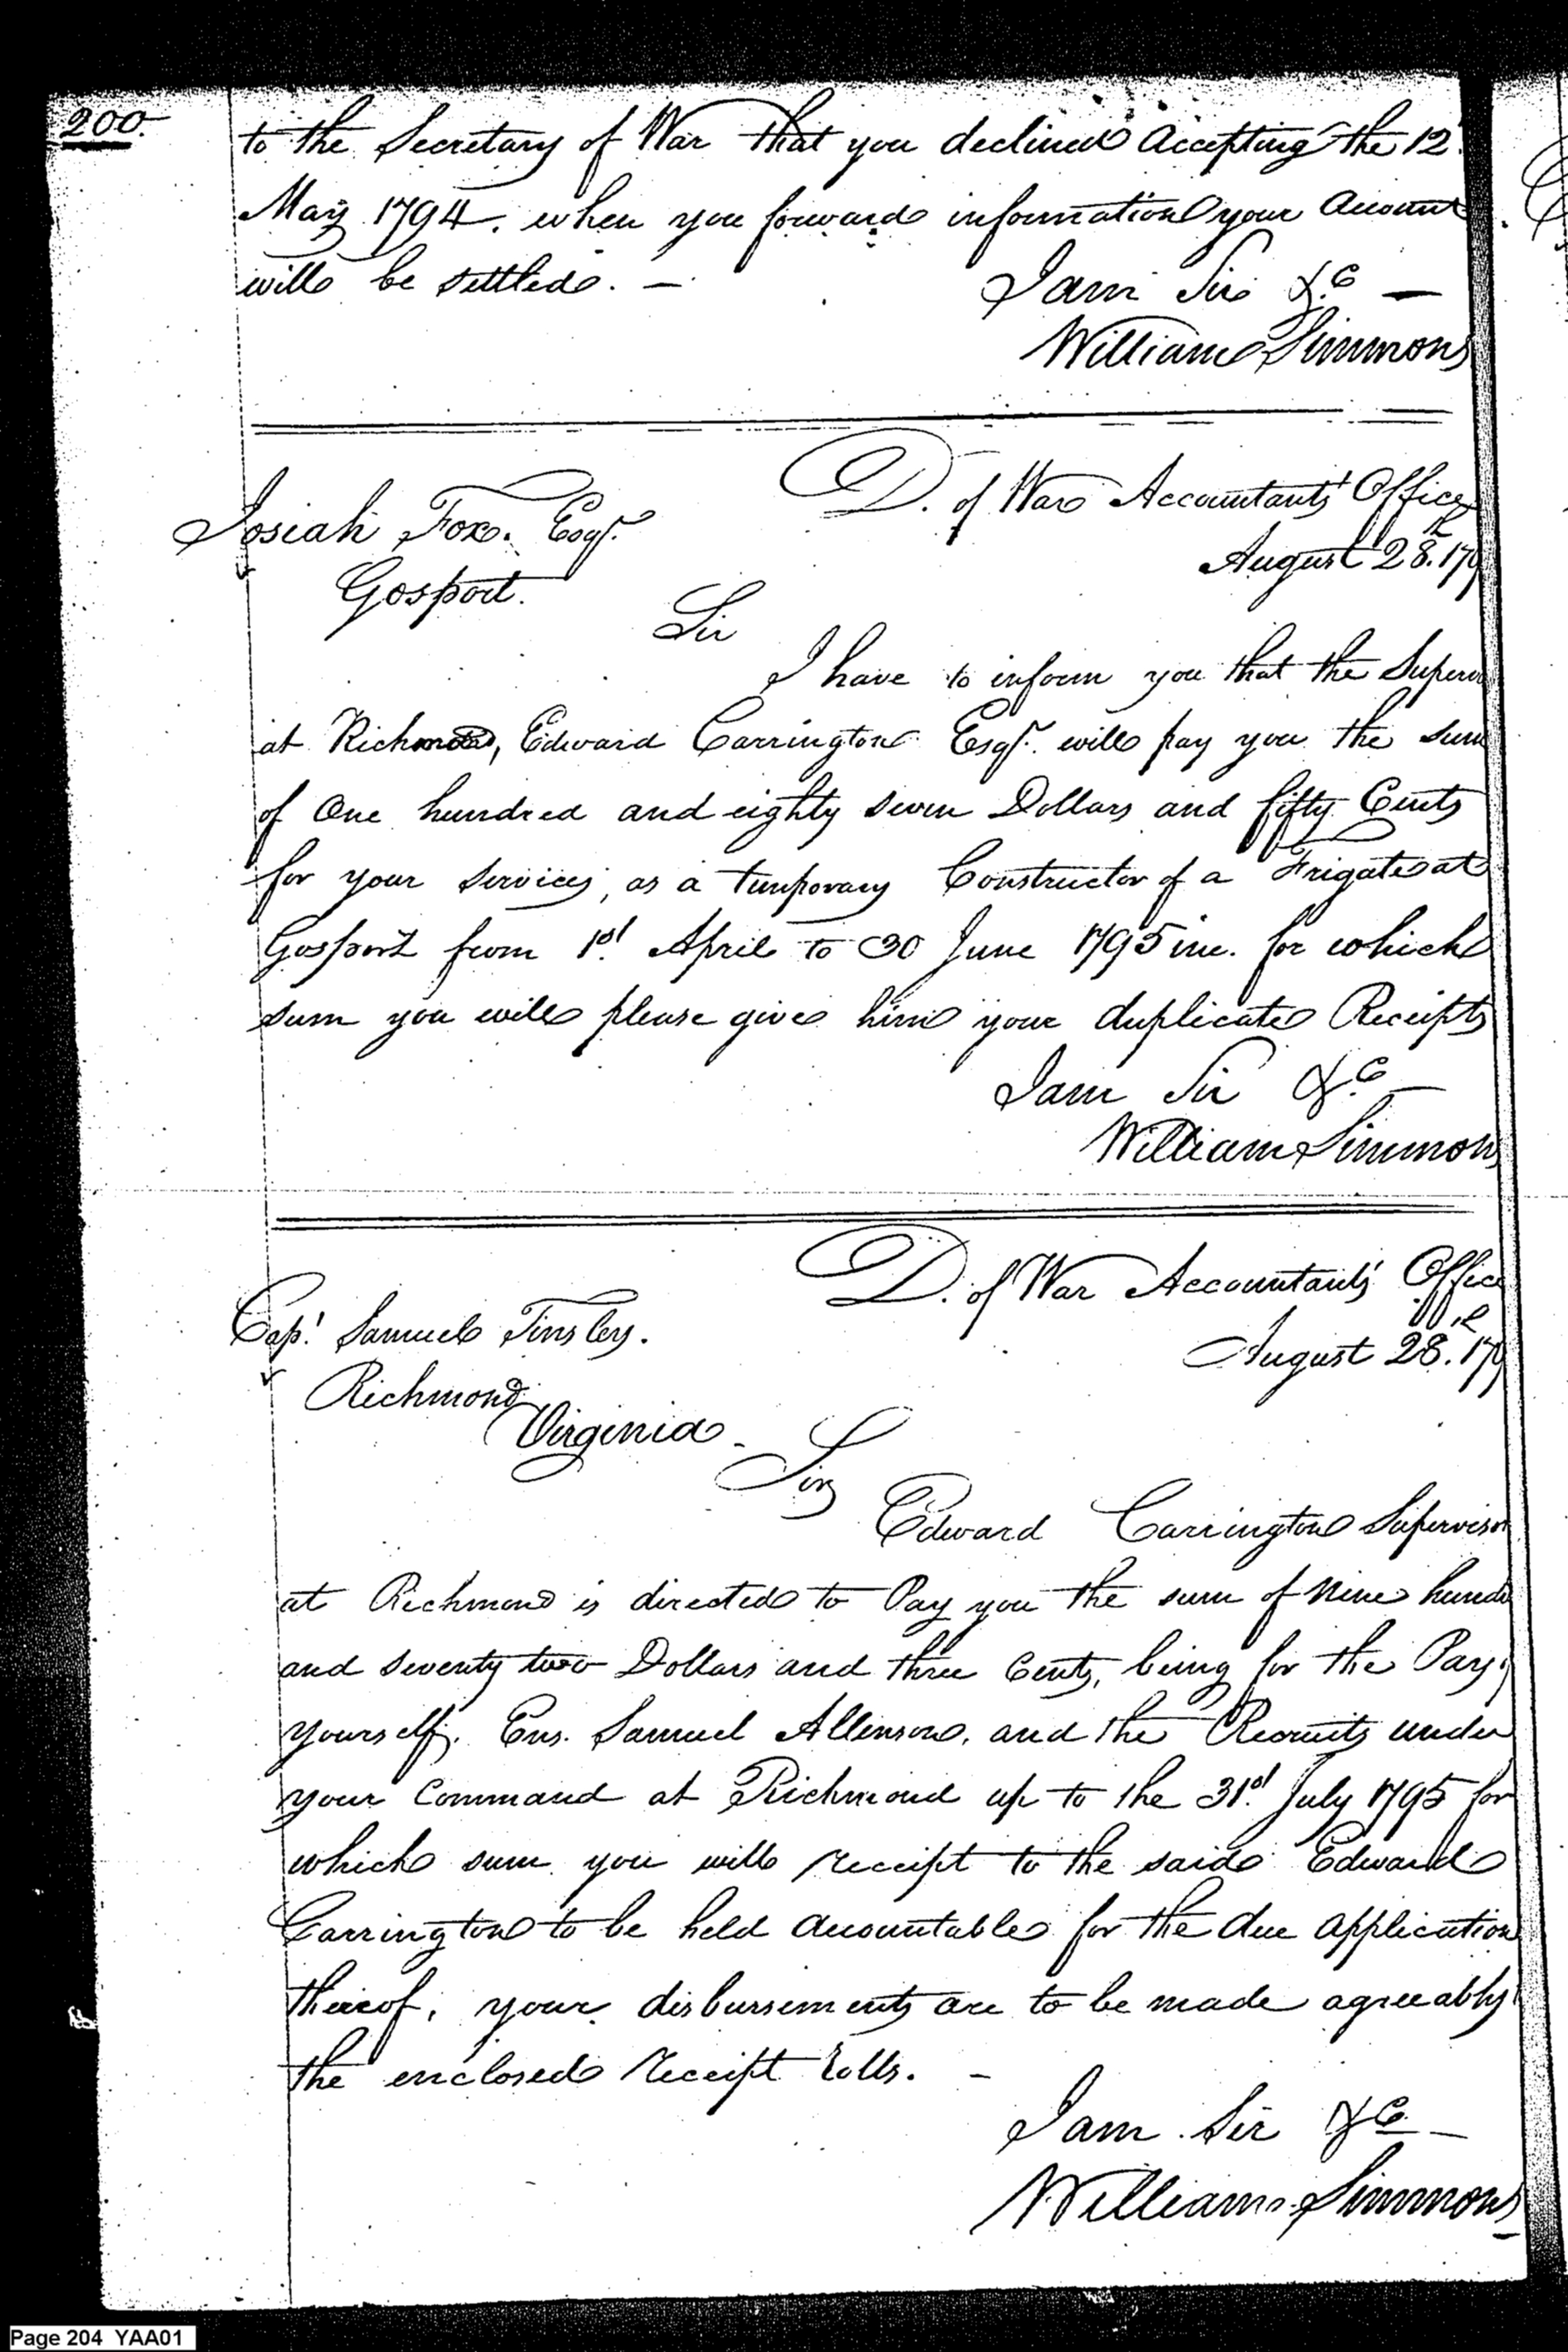 200.
to the Secretary of War that you declined Accepting the 12
May 1794. when you forward information your Account
will be settled. —
I am Sir &c —
William Simmons
D. of War Accountants Office
August 28th. 179
Josiah Fox. Esqr.
Gosport.
Sir
I have to inform you that the Superv
at Richmond, Edward Carrington Esqr. will pay you the sum
of One hundred and eighty seven Dollars and fifty Cents
for your services, as a temporary Constructor of a Frigate at
Gosport from 1st April to 30 June 1795 inc. for which
sum you will please give him your duplicate Receipts
I am Sir &c —
William Simmons
D. of War Accountants Office
August 28th. 179
Capt Samuel Tinsley.
Richmond
Virginia.
Sir
Edward Carrington Supervisor
at Richmond is directed to Pay you the sum of Nine hund
and seventy two Dollars and three Cents, being for the Pay
yourself. Ens. Samuel Allinson, and the Recruits under
your Command at Richmond up to the 31st July 1795 for
which sum you will receipt to the said Edward
Carrington to be held accountable for the due application
thereof, your disbursements are to be made agreeably
the enclosed receipt rolls. —
I am Sir &c —
William Simmons
Page 204 YAA01